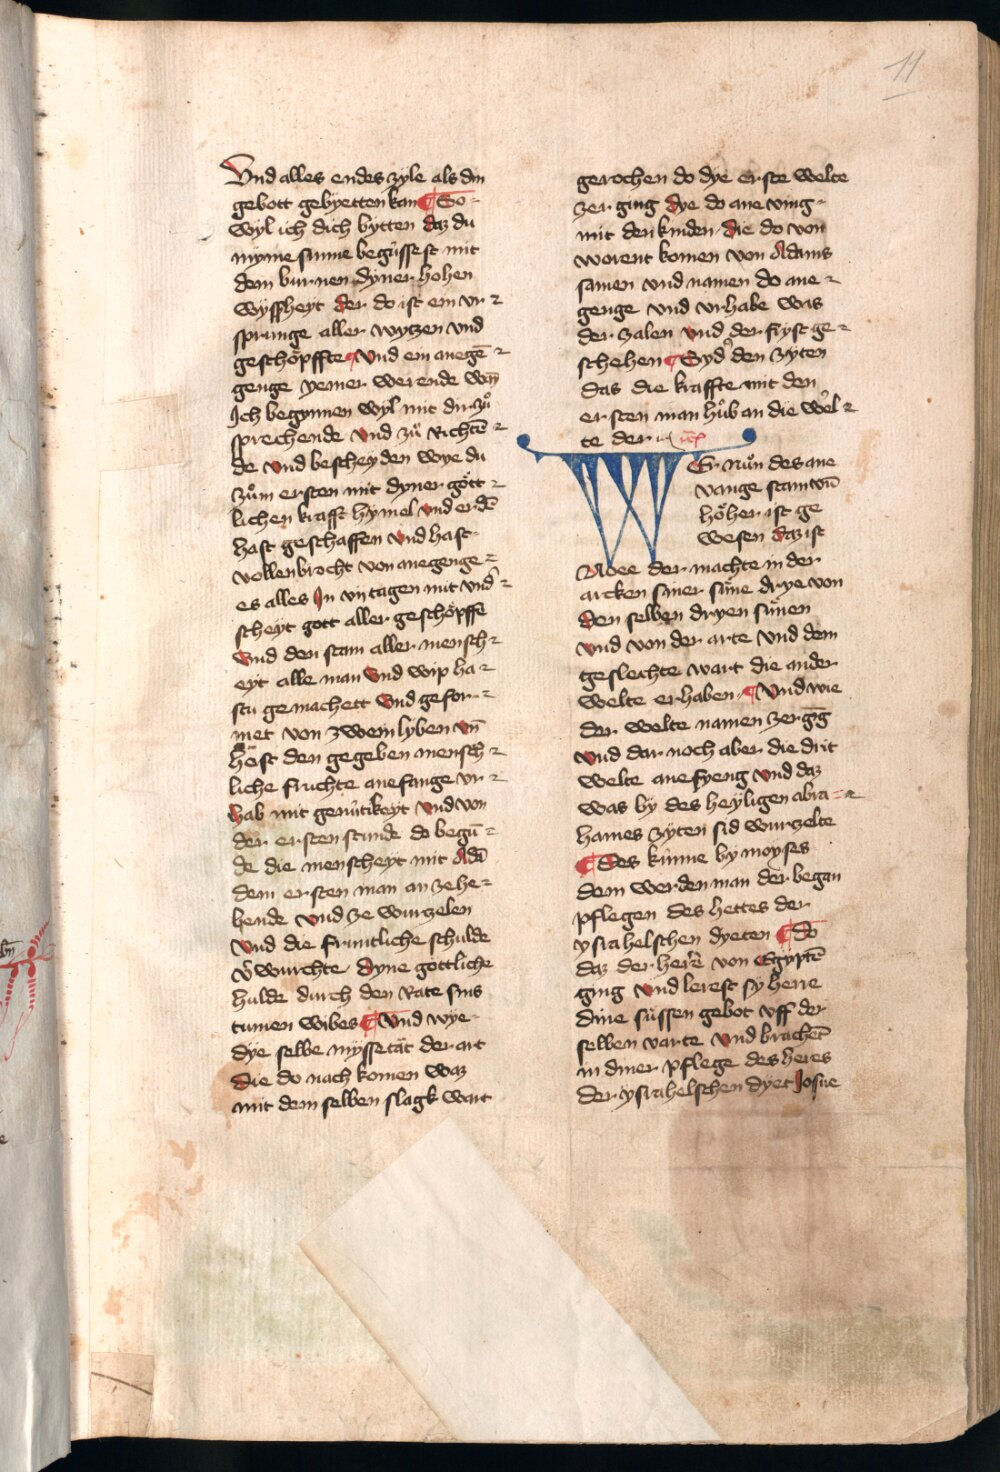 11
Vnd alles endes zyle als din
gebott gebyetten kan So-
wyl ich dich bytten daz du
myme sinne begüssest mit
dem burnen dyner hohen
wyssheyt der do ist ein vr-
sprunge aller wytzen vnd
geschöpffte vnd ein anegē-
genge yemer werende wān
Ich begynnen wyl mit dir zuͦ
sprechende vnd zuͦ Richtē-
de vnd bescheyden wye du
zuͦm ersten mit dyner gött-
lichen krafft hymel vnd erdē
hast geschaffen vnd hast-
vollenbrocht von anegenge-
es alles In vij tagen mit vnd-
scheyt gott aller geschöpffē
Vnd den stam aller mensch-
eyt alle man Vnd wip ha-
stu gemachett Vnd gefor-
met von zwein lyben vn̄
hest den gegeben mensch-
liche fruchte anefange vr-
hab mit gemütikeyt vnd von
der ersten stunde do begū-
de die menscheyt mit Adā
dem ersten man an zehe-
bende vnd ze wurzelen
vnd die fruntliche schulde
v̄wurchte dyne göttliche
hulde durch den Rate sins
tumen wibes Vnd wye-
dye selbe myssetät der art
die do nach komen waz
mit dem selben slagk wart
gerochen do dye erste welte
zer ging dye do ane ving-
mit den kinden die do von
worent komen von Adams
samen vnd namen do ane-
genge vnd vrhabe was
der zalen vnd der fryst ge-
schehen Syd den zyten
das die kraffte mit den
ersten man huͦb an die wel-
te der
ER nuͦn des ane
vange stam vn̄
höher ist ge
wesen daz ist
Noee der machte in der
arcken siner süne drye von
den selben dryen sünen
vnd von der arte vnd dem
geslechte wart die ander
welte erhaben Vnd wie
der welte namen zergīg
vnd dar noch aber die drit
welte anefyeng vnd daz
was by des heyligen abra-
hames zyten sid wurzelte
des künne by moyses
dem werden man der began
pflegen des hettes der
ysrahelschen dyeten do
daz der herre von Egyptē
ging vnd lerest sy herre
dine süssen gebot vff der
selben varte vnd brachet
in diner pflege des heres
der ysrahelschen dyet Iosue